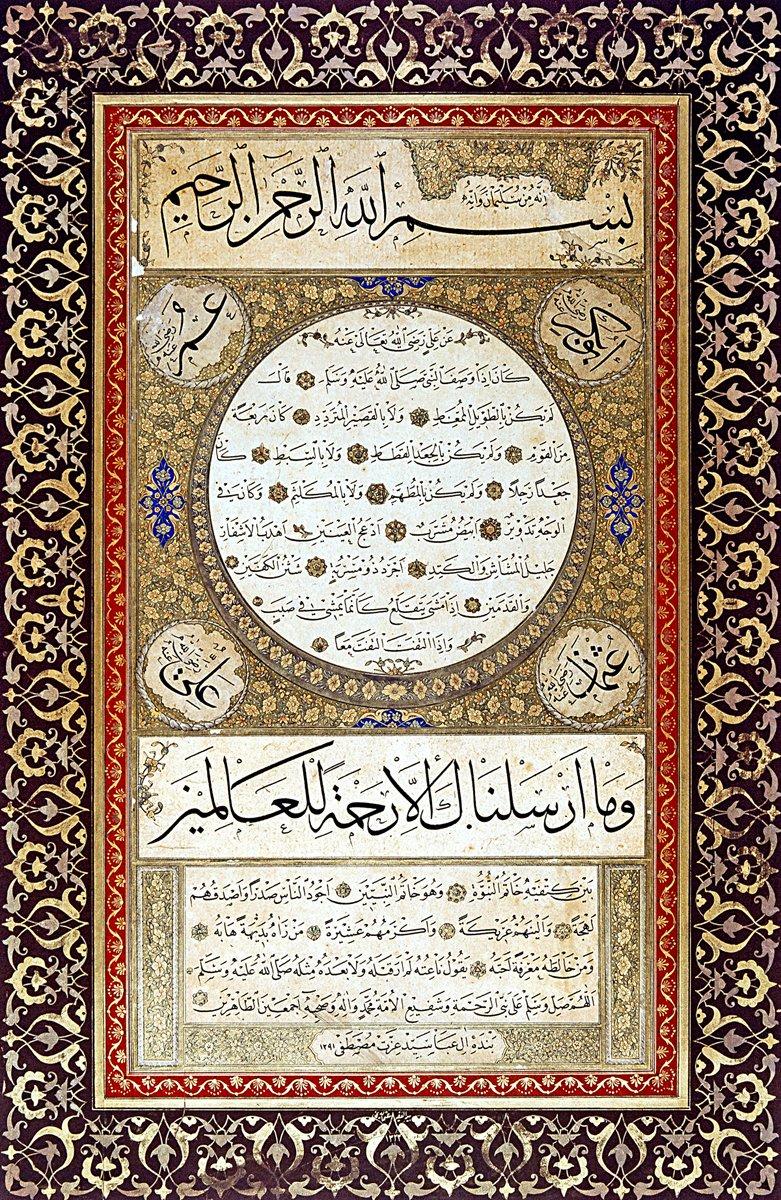 إنه من سليمان وإنه
بسم الله الرحمن الرحيم
أبو بكر رضي الله عنه
عمر رضي الله عنه
عن علي رضي الله تعالى عنه
كان إذا وصف النبي صلى الله عليه وسلم قال
لم يكن بالطويل الممغط ولا بالقصير المتردد كان ربعة
من القوم ولم يكن بالجعد القطط ولا بالسبط كان
جعدا رجلا ولم يكن بالمطهم ولا بالمكلثم وكان في
الوجه تدوير أبيض مشرب أدعج العينين أهدب الأشفار
جليل المشاش والكتد أجرد ذو مسربة شثن الكفين
والقدمين إذا مشى يتقلع كأنما يمشي في صبب
وإذا التفت التفت معا
عثمان رضي الله عنه
علي رضي الله عنه
وما أرسلناك إلا رحمة للعالمين
بين كتفيه خاتم النبوة وهو خاتم النبيين أجود الناس صدرا وأصدقهم
لهجة وألينهم عريكة وأكرمهم عشيرة من رآه بديهة هابه
ومن خالطه معرفة أحبه يقول ناعته لم أر قبله ولا بعده مثله صلى الله عليه وسلم
اللهم صل وسلم على نبي الرحمة وشفيع الأمة محمد وآله وصحبه أجمعين الطاهرين
بنده آل عبا سيد عزت مصطفى ١٢٩١
١٣٢٢